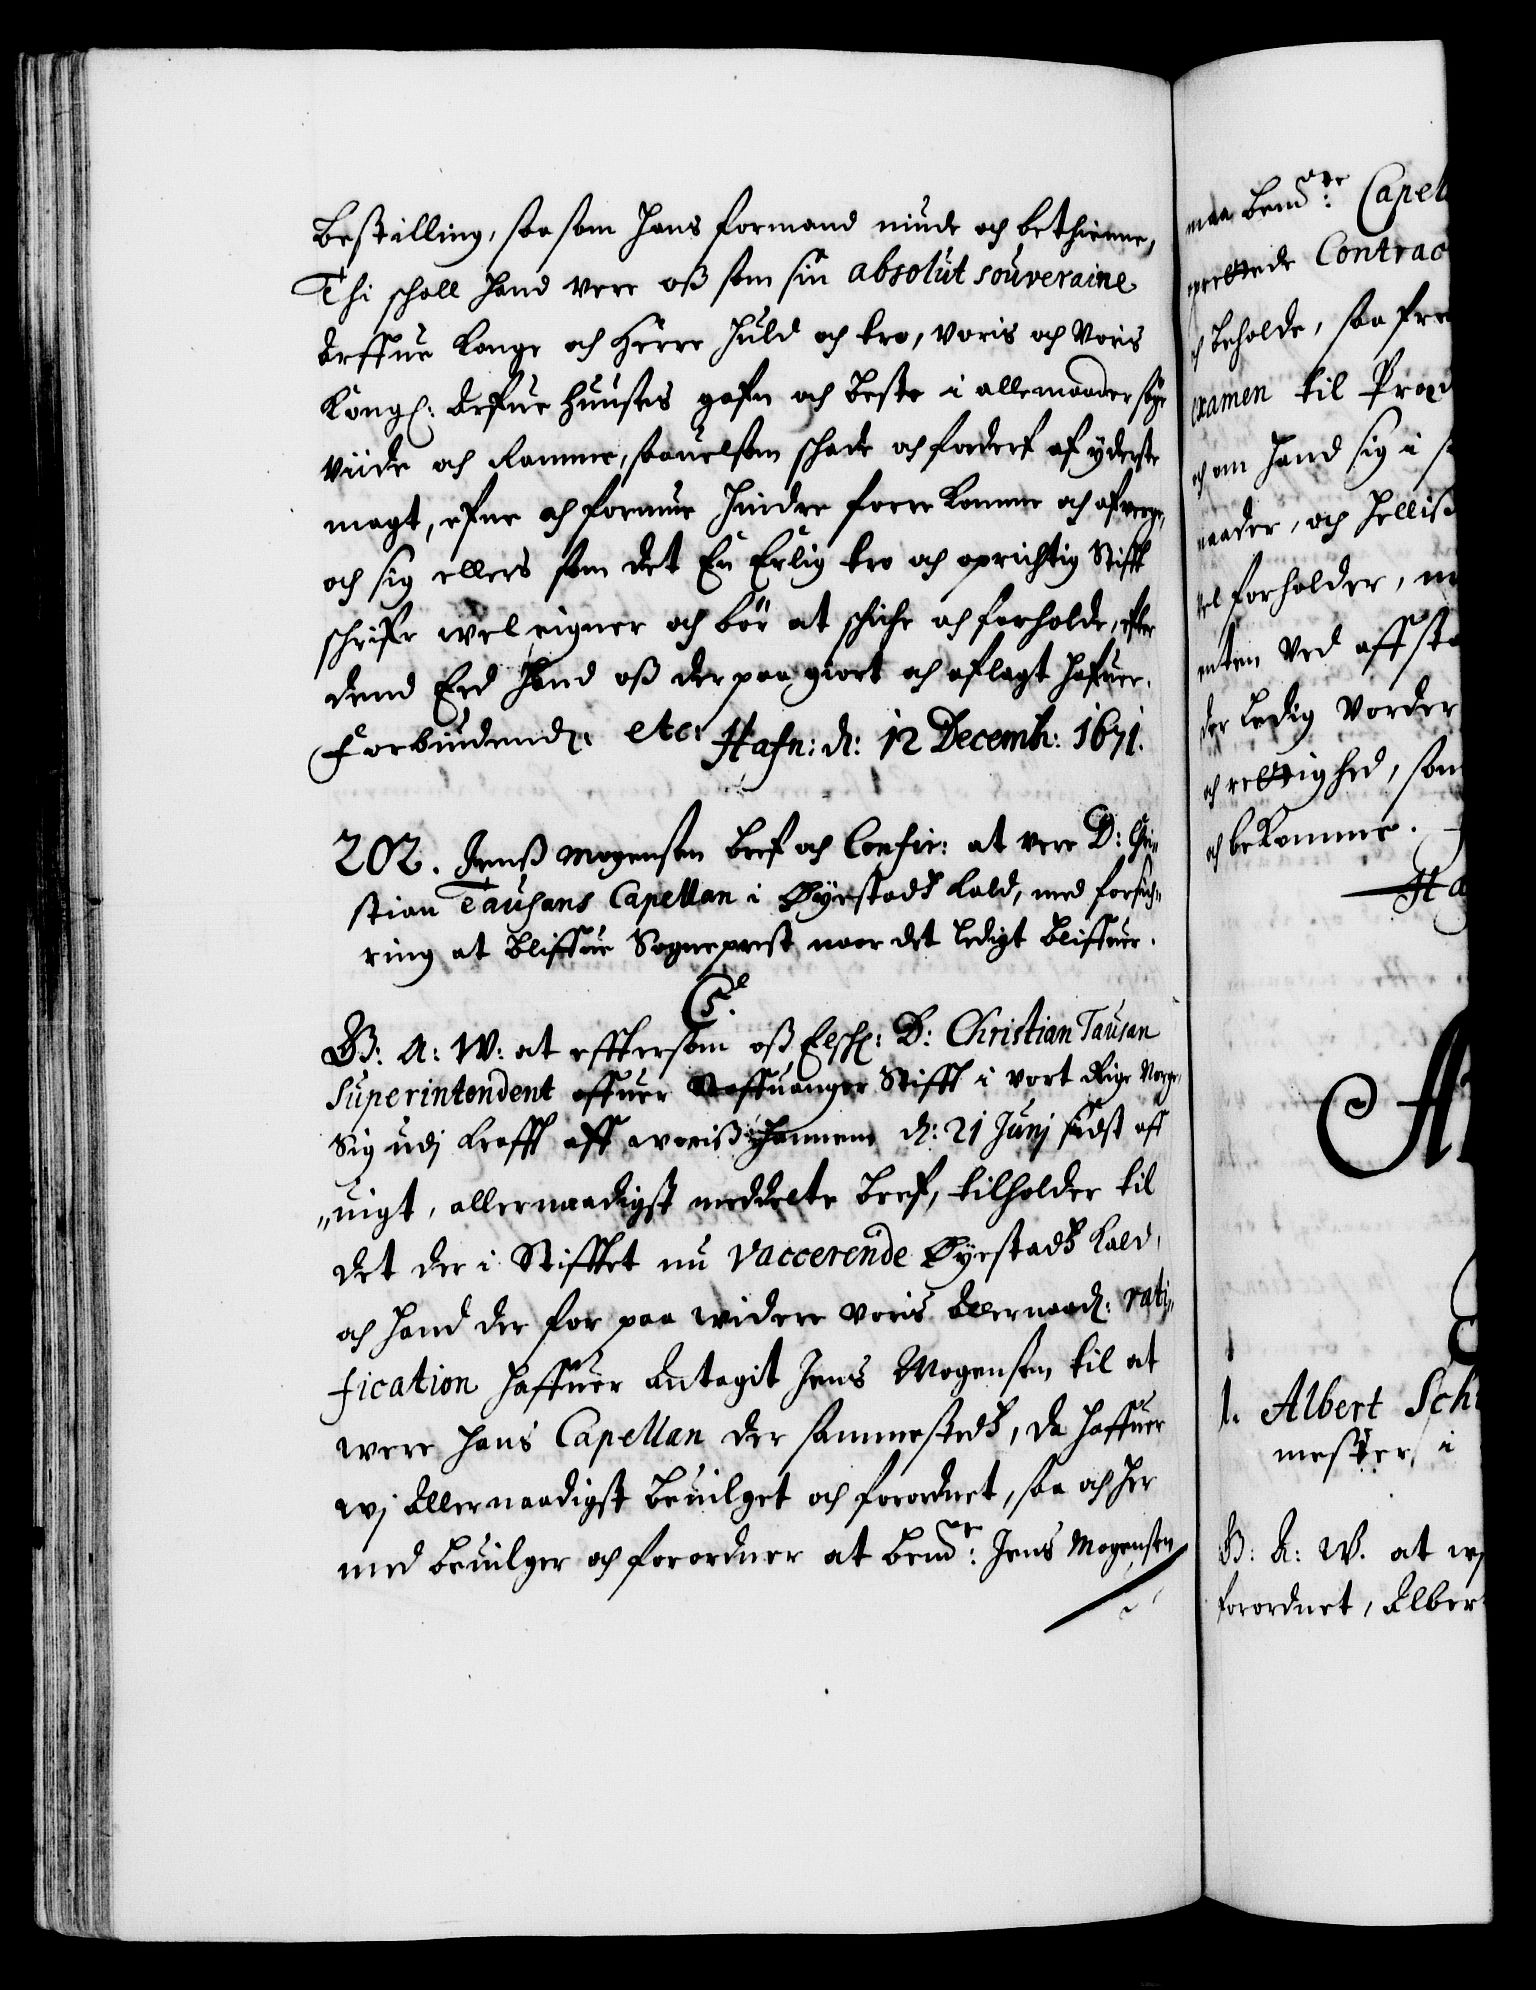 Bestilling, saa som hans formand niude och bethiemme,
Thi schall hand vere oß som sin absolut souveraine
Arffue Konge och Herre huld och tro, voris och Voris
Kongl: Arfue Huusses gafn och beste i allemaader søge
viide och Ramme, saauelsom schade och forderf af yderste
magt, efne och formue hindre forre Komme och afverge,
och sig ellers som det En Erlig tro och oprichtig Stifft
schrifr wel eigner och bör at schiche och forholde, efter
dend Eed hand oß der paa giort och aflagt hafuer.
Forbindend: etc: Hafn: d: 12 Decemb: 1671.
202. Jenß Mogensen bref och Confir: at vere D: Chri„
stian Tausans Capellan i Øyestads kald, med forsich„
ring at bliffue Sogneprest naar det ledigt bliffuer.
C5.
G: A: W: at efftersom oß Elsch: D: Christian Tausan
Superintendent offuer Staffuanger Stifft i vort Rige Norge,
Sig udj krafft aff woriß hannem d: 21 Junj sidst aff
„uigt, allernaadigst meddelte bref, tilholder til
det der i Stifftet nu vaccerende Øyestads kald,
och hand der for paa widere voris Allernaad: rati„
fication haffuer Antagit Jens Mogensen til at
were hans Capellan der sammesteds, da haffuer
wj Allernaadigst beuilget och forordnet, saa och her
med beuilger och forordner at bemte: Jens Mogensen
maa bemte: Capel
oprettede Contrac
och beholde, saa fre
examen til Præd
och om hand sig i s
maader, och
vel forholder,
enten ved affsta
der ledig vorder
och rettighed, som
och bekomme.
Ha
A
1. Albert Sch
mester i
G: A: W. at wj
forordnet, Alber